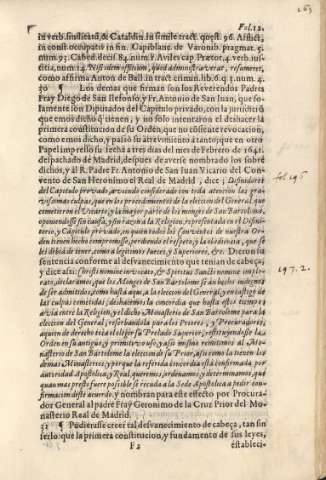 163
Fol. 12.
in verb. iustitia, & Cataldin. in simile tract. quest. 96. Afflict.
in const. occupatis in fin. Capiblanc. de Varonib. pragmat. 5.
num. 93. Cabed. decis. 84. num. 8. Auiles cap. Prætor. 4. verb. ius-
titia, num. 14.
como affirma Anton. de Ball. in tract crimin. lib. 6. q 1. num. 4.
50 ¶ Los demas que firman son los Reuerendos Padres
Fray Diego de San Ilefonso, y Fr. Antonio de San Iuan, que so-
lamente son Diputados del Capitulo priuado, con la jurisdiciõ
que emos dicho q̃ tienen, y no solo intentaron el deshacer la
primera constitucion de su Orden, que no cõsiente reuocacion,
como emos dicho, y passò su atreuimiento a tanto; que en otro
Papel impresso su fecha a tres dias del mes de Febrero de 1641.
despachado de Madrid, despues de auerse nombrado los sobre
dichos, y al R. Padre Fr. Antonio de San Iuan Vicario del Con-
uento de San Heronimo el Real de Madrid; dice; Difinidores
del Capitulo priuado, aviendo considerado con toda atencion las gra-
vissimas culpas, que en los procedimientos de la eleccion del General, que
cometieron el Vicario, y la mayor parte de los monges de San Bartolomè,
oponiendosse sin causa, y sin razon a la Religion, representada en el Difini-
torio, y Capitulo privado, en quien todos los Conventos de nuestra Or-
den tienen hecho compromisso, perdiendo el respeto, y la obediencia, que se
les debia de tener, como a legitimos Iueces, y Superiores, &c. Dieron su
sentencia conforme al desvanecimiento que tenian de cabeça;
y dice assi: Christi nomine invocato, & Spiritus Sancti nomine implo-
rato, declaramos, que los Monges de San Bartolomè se an hecho indignos
de ser admitidos, como hasta aqui, a la eleccion del General, y en castigo de
las culpas cometidas; deshacimos la concordia que hasta estos tiempos
avia entre la Religion, y el dicho Monasterio de San Bartolome para la
eleccion del General; reservandola para los Priores, y Procuradores,
a quien de derecho toca el elegir su Prelado Superior; restituyendosse la
Orden en su antiguo, y primitivo uso, y assi mismo remitimos al Mo-
nasterio de San Bartolome la eleccion de su Prior, assi como la tienen los
demas Monasterios, y porque la referida concordia està confirmada por
autoridad Apostolica, y Real, queremos, ordenamos, y determinamos, que
quan mas presto fuere possible se recuda a la Sede Apostolica a pedir con-
firmacion de este acuerdo, y nombran para este efecto por Procura-
dor General al padre Fray Geronimo de la Cruz Prior del Mo-
nasterio Real de Madrid.
51 ¶ Pudierasse creer tal desvanecimiento de cabeça, tan sin
serlo: que la primera constitucion, y fundamento de sus leyes,
F 2
estableci-
fol 196
197. 2.